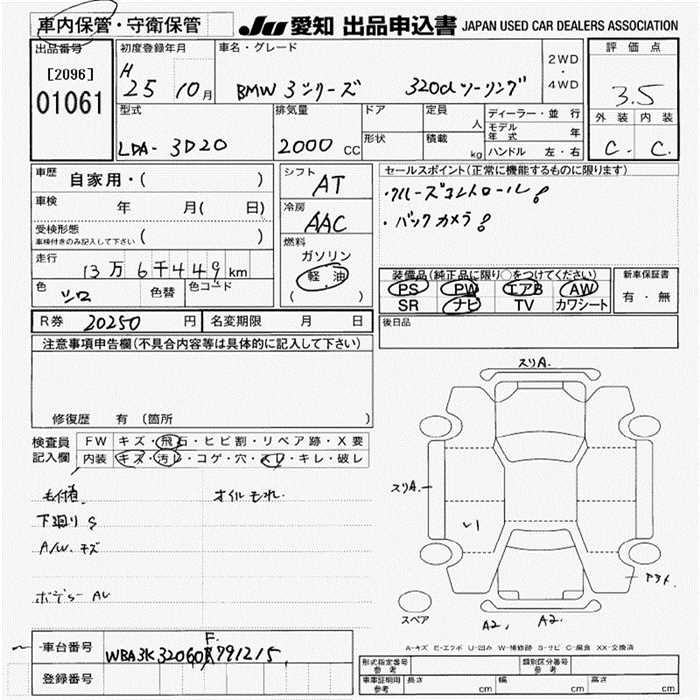 車内保管・守衛保管
JU 愛知 出品申込書 JAPAN USED CAR DEALERS ASSOCIATION
出品番号
[2096]
01061
初度登録年月
H 25 10月
車名・グレード
BMW 3シリーズ 320dツーリング
2WD
・
4WD
評価点
3.5
外装 内装
C. C.
型式
LDA- 3D20
排気量
2000 CC
ドア
形状
定員
人
積載
kg
ディーラー・並行
モデル年式 年
ハンドル 左・右
車歴
自家用・( )
車検
年 月( 日)
受検形態
車検付きのみ記入して下さい ( )
走行
13万6千449km
色
シロ
色替
色コード
シフト
AT
冷房
AAC
燃料
ガソリン
軽油
( )
セールスポイント(正常に機能するものに限ります)
・クルーズコントロール
・バックカメラ
装備品(純正品に限り○をつけてください)
PS PW エアB AW
SR ナビ TV カワシート
新車保証書
有・無
R券 20250 円
名変期限 月 日
後日品
注意事項申告欄(不具合内容等は具体的に記入して下さい)
修復歴 有 (箇所 )
検査員
記入欄
FW キズ・飛石・ヒビ割・リペア跡・X要
内装 キズ・汚レ・コゲ・穴・スレ・キレ・破レ
オイルもれ.
下廻りS
A/W.キズ
スリA.
スリA.
A2, A2.
スペア
A-キズ E-エクボ U-凹み W-補修跡 S-サビ C-腐食 XX-交換済
車台番号
F.
WBA3K32060F791215
登録番号
形式指定番号
参考
類別区分番号
参考
車車証明用
参考
長さ cm
幅 cm
高さ cm